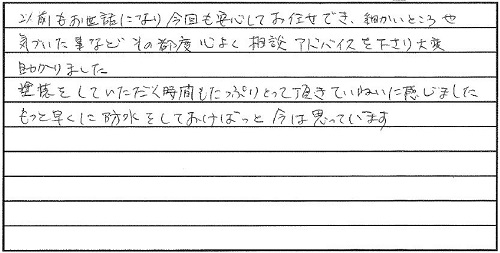 以前もお世話になり今回も安心してお任せでき、細かいところや
気づいた事などその都度心よく相談アドバイスを下さり大変
助かりました
塗替をしていただく時間もたっぷりとって頂きていねいに感じました
もっと早くに防水をしておけばっと今は思っています